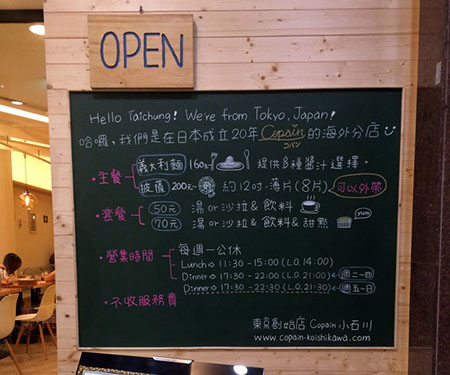 OPEN
Hello Taichung! We're from Tokyo, Japan!
哈囉,我們是在日本成立20年Copain的海外分店
コパン
・主餐 義大利麵 160元 提供8種醬汁選擇。
披薩 200元~ 約12吋・薄片(8片) 可以外帶
・套餐 50元 湯or沙拉&飲料
70元 湯or沙拉&飲料&甜點 yum
・營業時間 每週一公休
Lunch→11:30-15:00 (L.O.14:00)
Dinner→17:30-22:00 (L.O.21:00) 週二~四
Dinner→17:30-22:30 (L.O.21:30) 週五~日
・不收服務費
東京創始店 Copain 小石川
www.copain-koishikawa.com